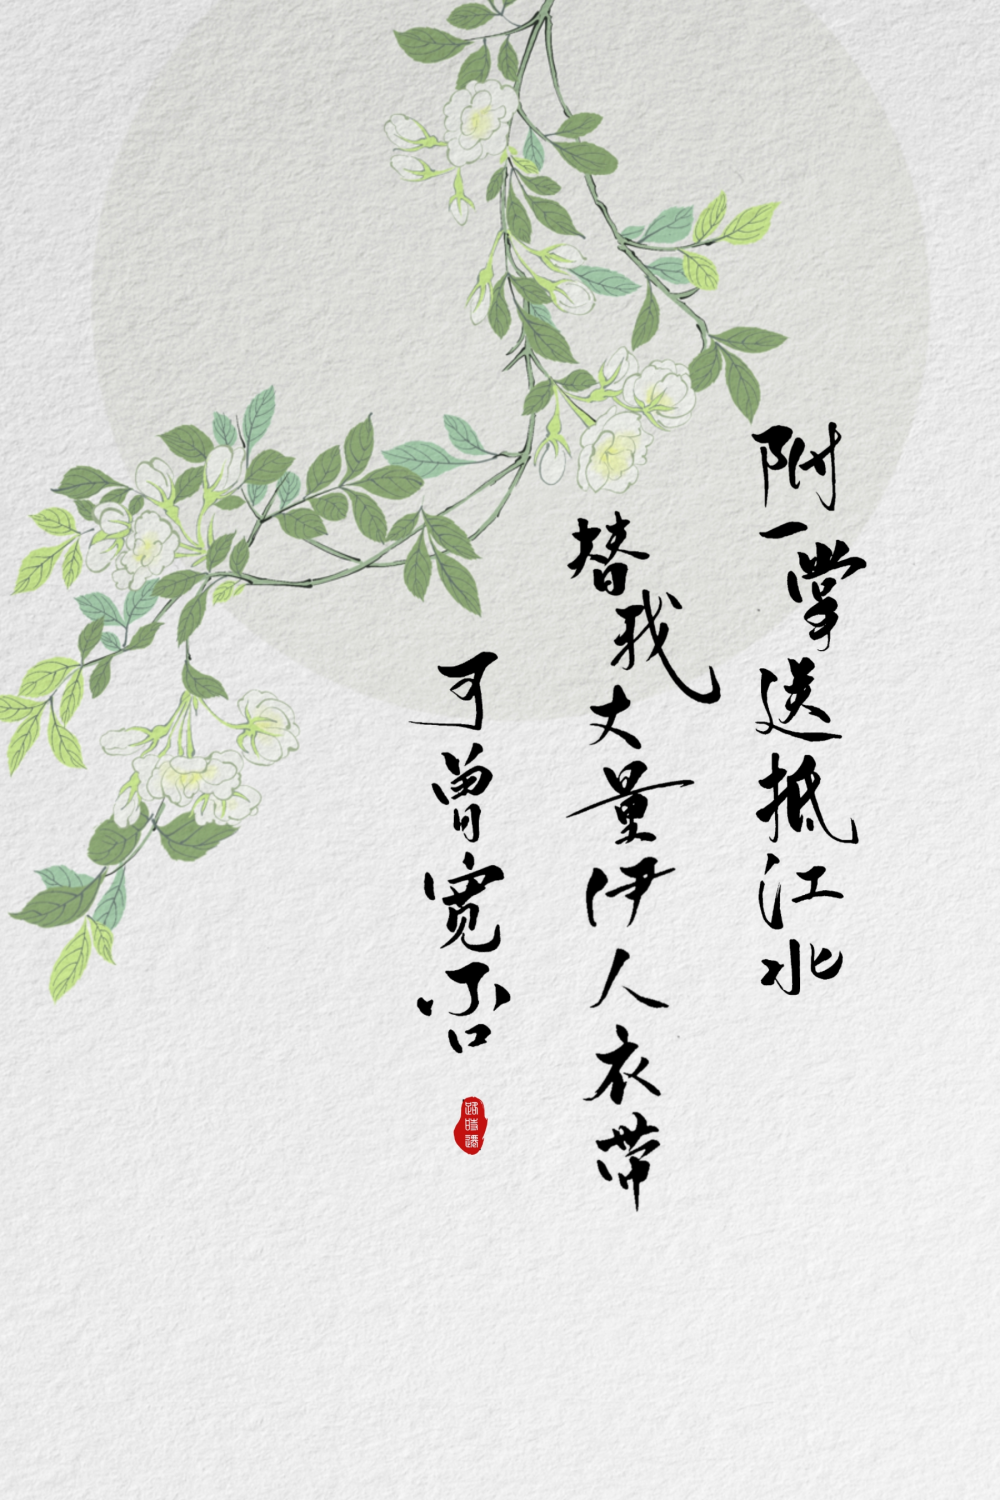 附一掌送抵江北
替我丈量伊人衣带
可曾宽否